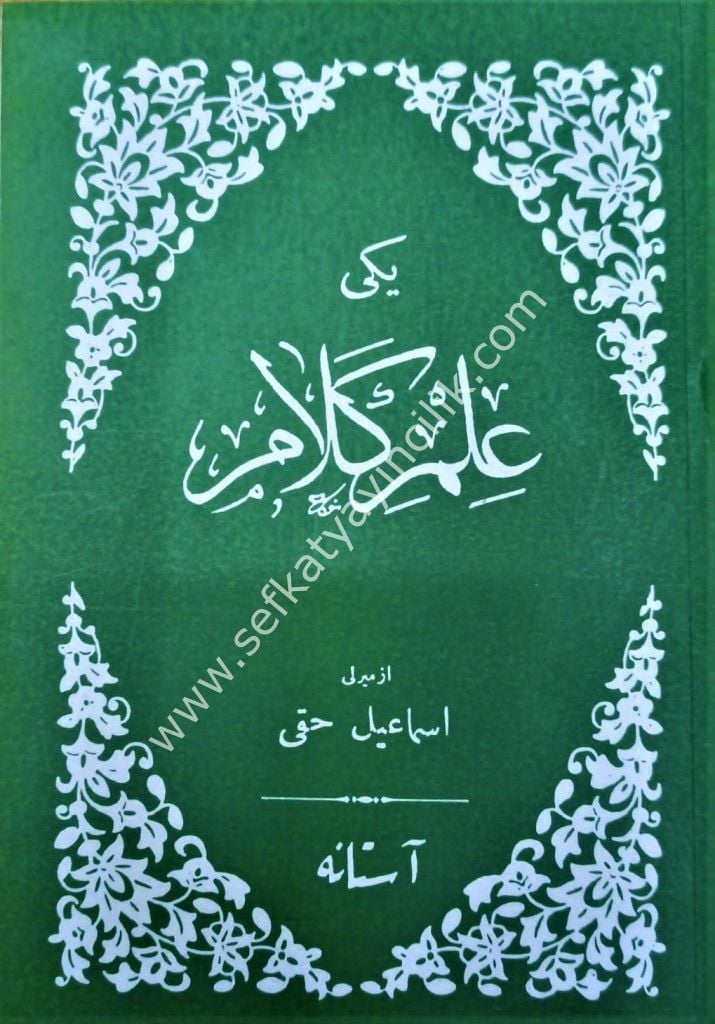 یکی
علم کلام
ازمیرلی
اسماعیل حقی
آستانه
www.sefkatyayincilik.com